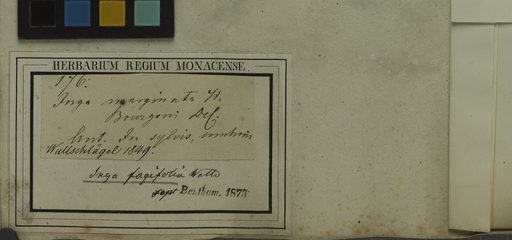 HERBARIUM REGIUM MONACENSE.
176.
Inga marginata W.
Bourgoni DC.
Ant. In sylvis,
Wullschlägel 1849.
Inga fagifolia Willd
Benthem. 1873